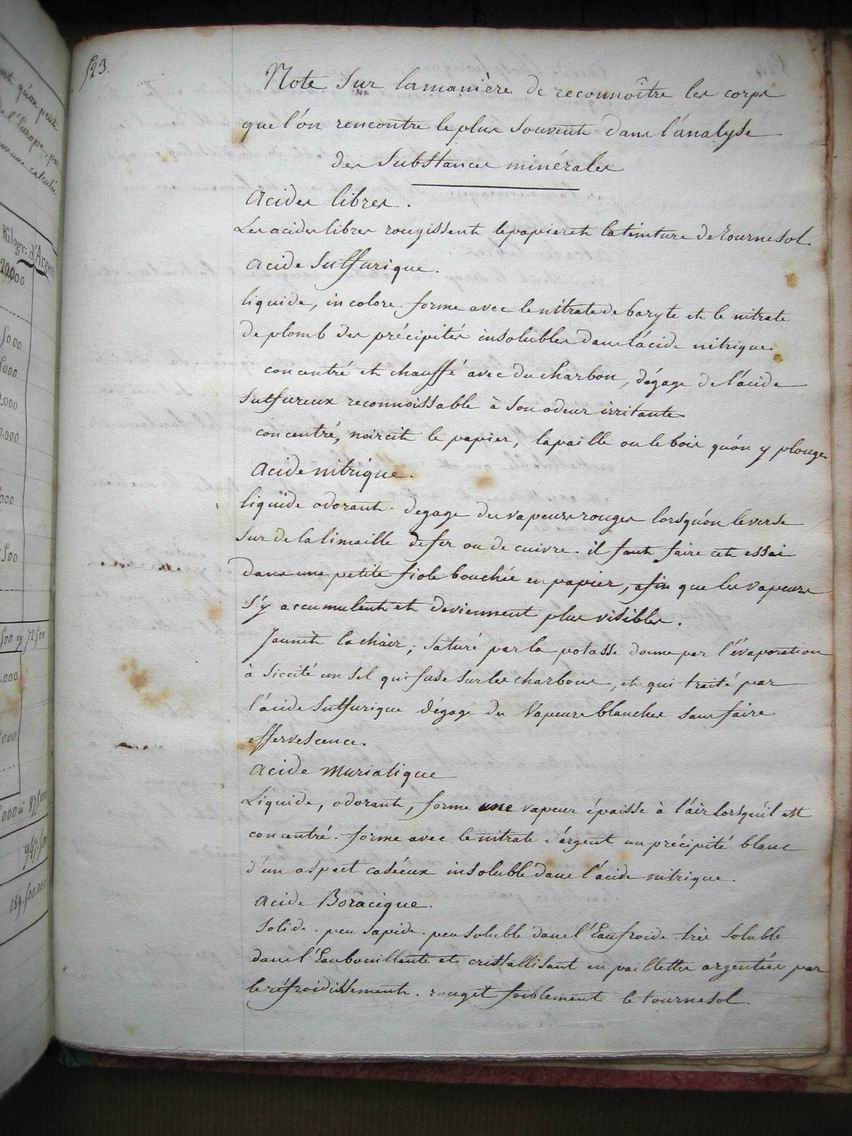 nt qu'on peut
de l'Europe. pa
mme calculée
Kilogr. d'Argen
20,000
5000
5,000
0,000
,000
500
500 y 72500
.000
,000
,000 à 875000
947500
189.500.000
523.
Note sur la manière de reconnoître les corps
que l'on rencontre le plus souvent dans l'analyse
des Substances minérales
Acides libres.
Les acides libres rougissent le papier et la teinture de tournesol.
Acide Sulfurique.
liquide, incolore. forme avec le nitrate de baryte et le nitrate
de plomb des précipités insolubles dans l'acide nitrique.
concentré et chauffé avec du charbon, dégage de l'acide
Sulfureux reconnoissable à son odeur irritante
concentré, noircit le papier, la paille ou le bois qu'on y plonge
Acide nitrique.
liquide odorant. degage des vapeurs rouges lorsqu'on le verse
sur de la limaille de fer ou de cuivre. il faut faire cet essai
dans une petite fiole bouchée en papier, afin que les vapeurs
s'y accumulent et deviennent plus visibles.
Jaunit la chair; saturé par la potasse donne par l'évaporation
à siccité un sel qui fuse sur les charbons, et qui traité par
l'acide Sulfurique dégage des Vapeurs blanches sans faire
effervescence.
Acide muriatique
Liquide, odorant, forme une vapeur épaisse à l'air lorsqu'il est
concentré. forme avec le nitrate d'argent un précipité blanc
d'un aspect caséeux insoluble dans l'acide nitrique.
Acide Boracique.
Solide. peu sapide. peu soluble dans l'Eau froide très soluble
dans l'Eau bouillante et cristallisant en paillettes argentées par
le réfroidissement. rougit foiblement le tournesol.